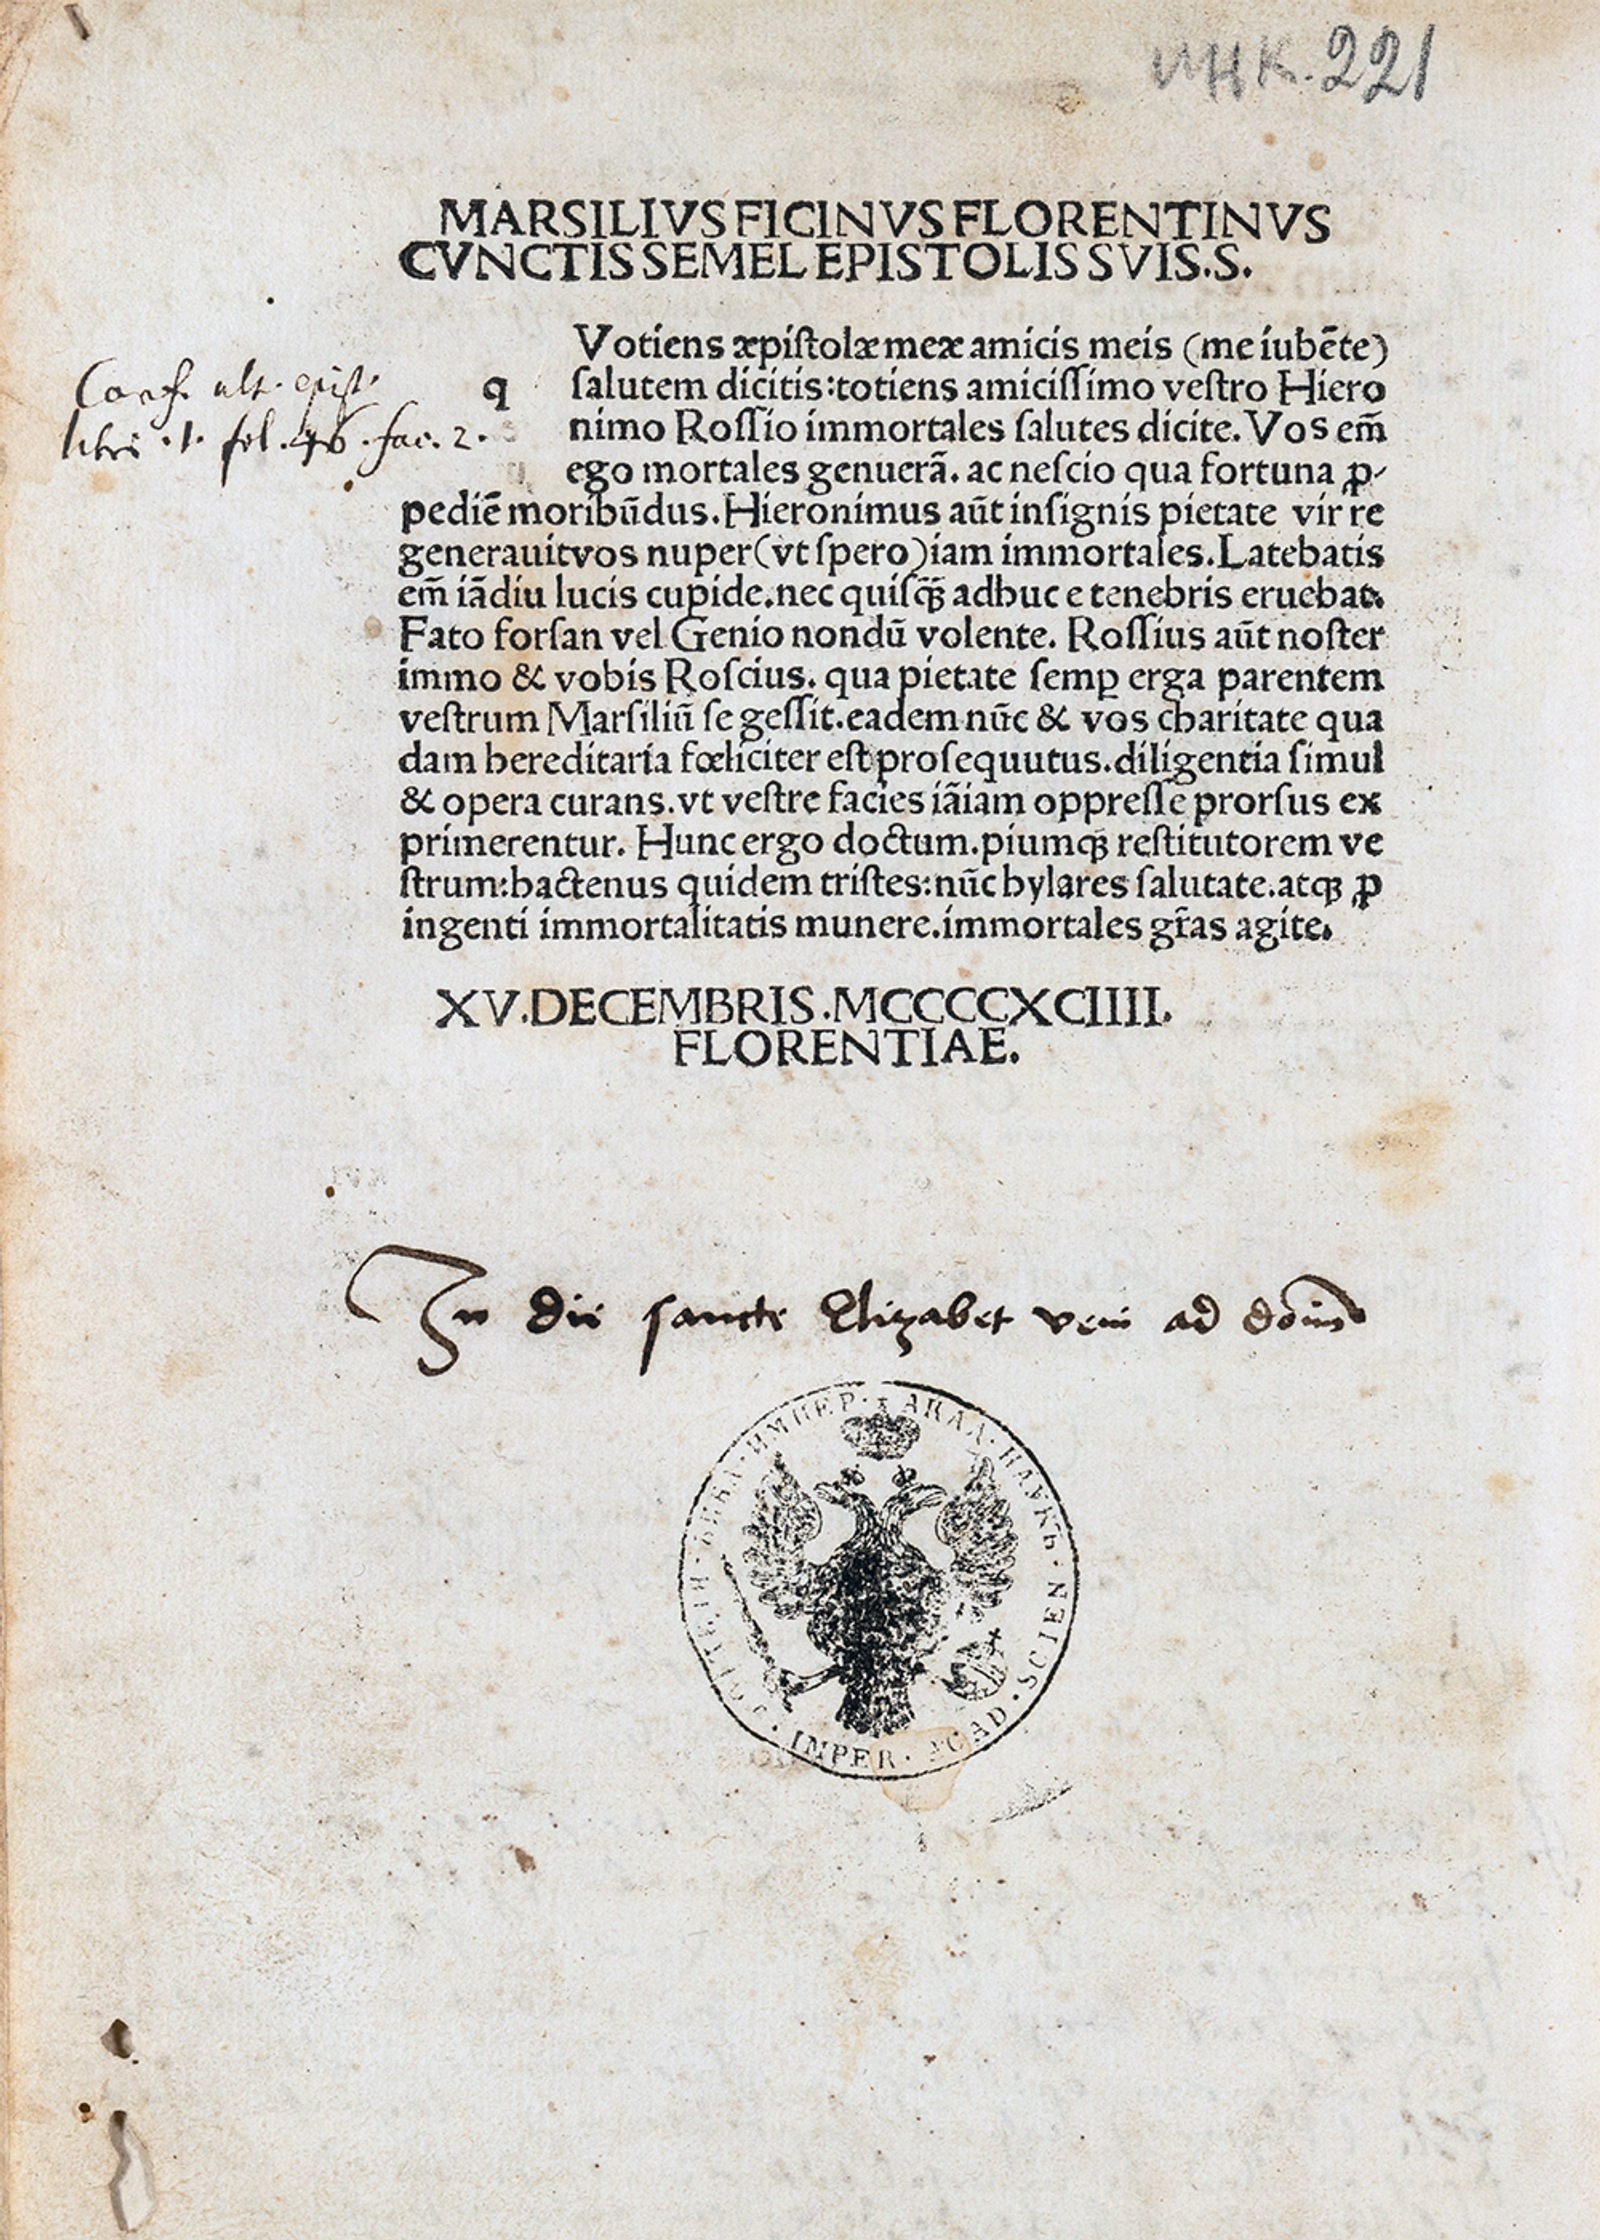 ИНК. 221
MARSILIVS FICINVS FLORENTINVS
CVNCTIS SEMEL EPISTOLIS SVIS.S.
q Votiens æpistolæ meæ amicis meis (me iubēte)
salutem dicitis:totiens amicissimo vestro Hiero
nimo Rossio immortales salutes dicite. Vos em̄
ego mortales genuerā. ac nescio qua fortuna ꝓ-
pediē moribūdus. Hieronimus aūt insignis pietate vir re
generauit vos nuper (vt spero) iam immortales. Latebatis
em̄ iādiu lucis cupide. nec quisꝙ̄ adhuc e tenebris eruebat.
Fato forsan vel Genio nondū volente. Rossius aūt noster
immo & vobis Roscius. qua pietate semꝑ erga parentem
vestrum Marsiliū se gessit. eadem nūc & vos charitate qua
dam hereditaria fœliciter est prosequutus. diligentia simul
& opera curans. vt vestre facies iāiam oppresse prorsus ex
primerentur. Hunc ergo doctum. piumqꝫ restitutorem ve
strum: hactenus quidem tristes: nūc hylares salutate. atqꝫ ꝓ
ingenti immortalitatis munere. immortales gr̄as agite.
Conf. ult. epist.
libri .1. fol. 46. fac. 2.
XV. DECEMBRIS. MCCCCXCIIII.
FLORENTIAE.
In die sancte Elizabet veni ad
БИБЛ. ИМПЕР. АКАД. НАУКЪ.
IMPER. ACAD. SCIEN